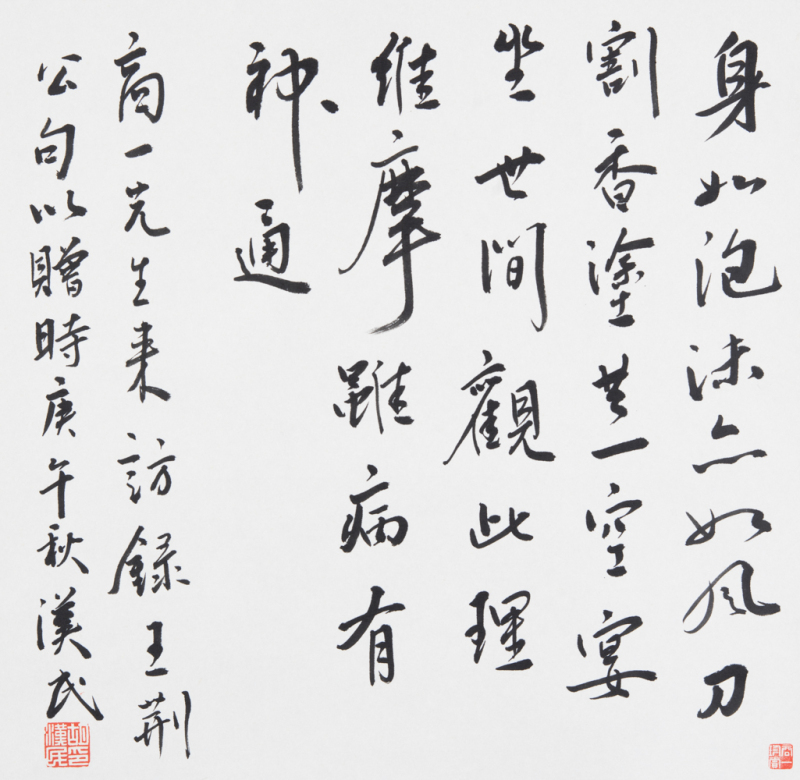 身如泡沫亦如風刀
割香塗共一空宴
坐世間觀此理
維摩雖病有
神通
商一先生来訪録王荊
公句以贈時庚午秋漢民
胡漢民印